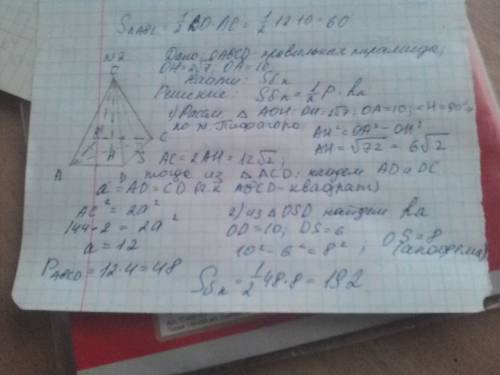 S = 1/2 BD·AC = 1/2·12·10 = 60
N2
Дано: OABCD - правильная пирамида,
OH = 2√7; OA = 10,
Найти: Sбп
Решение: Sбп = 1/2 P · ha
1) Рассм. △ AOH: OH = 2√7; OA = 10; <H = 90°
по т. Пифагора AH² = OA² - OH²
AH = √72 = 6√2
AC = 2AH = 12√2;
O
C
A
H
D
S
тогда из △ ACD: найдем AD и DC
a = AD = CD (т.к. ABCD - квадрат)
AC² = 2a²
144·2 = 2a²
a = 12
P ABCD = 12·4 = 48
2) из △ OSD найдем ha
OD = 10; DS = 6
10² - 6² = 8²; OS = 8
(апофема)
Sбп = 1/2 48·8 = 192